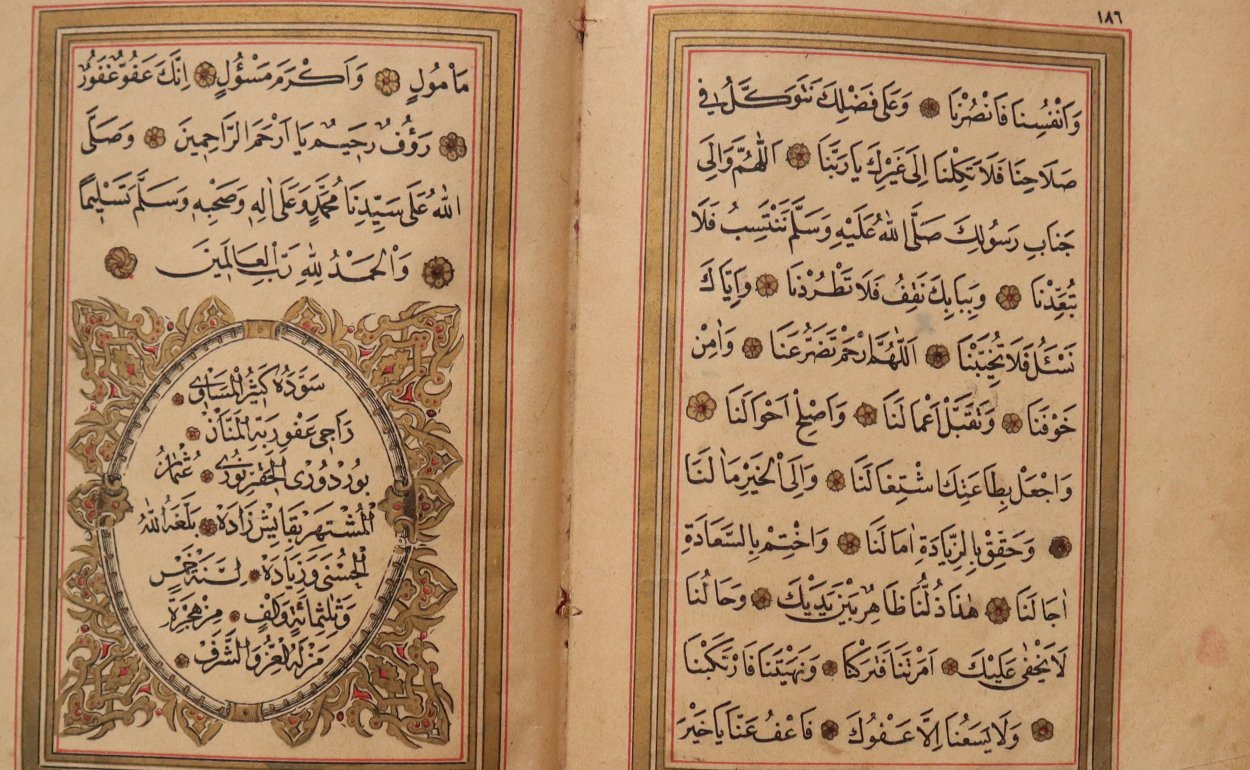 ١٨٦
وَاَنْفُسِنَا فَانْصُرْنَا وَعَلٰى فَضْلِكَ نَتَوَكَّلُ فِى
صَلَاحِنَا فَلَا تَكِلْنَا اِلٰى غَيْرِكَ يَا رَبَّنَا اَللّٰهُمَّ وَاِلٰى
جَنَابِ رَسُولِكَ صَلَّى اللّٰهُ عَلَيْهِ وَسَلَّمَ نَنْتَسِبُ فَلَا
تُبَعِّدْنَا وَبِبَابِكَ نَقِفُ فَلَا تَطْرُدْنَا وَاِيَّاكَ
نَسْئَلُ فَلَا تُخَيِّبْنَا اَللّٰهُمَّ ارْحَمْ تَضَرُّعَنَا وَاٰمِنْ
خَوْفَنَا وَتَقَبَّلْ اَعْمَالَنَا وَاَصْلِحْ اَحْوَالَنَا
وَاجْعَلْ بِطَاعَتِكَ اشْتِغَالَنَا وَاِلَى الْخَيْرِ مَاٰلَنَا
وَحَقِّقْ بِالزِّيَادَةِ اٰمَالَنَا وَاخْتِمْ بِالسَّعَادَةِ
اٰجَالَنَا هٰذَا ذُلُّنَا ظَاهِرٌ بَيْنَ يَدَيْكَ وَحَالُنَا
لَا يَخْفٰى عَلَيْكَ اَمَرْتَنَا فَتَرَكْنَا وَنَهَيْتَنَا فَارْتَكَبْنَا
وَلَا يَسَعُنَا اِلَّا عَفْوُكَ فَاعْفُ عَنَّا يَا خَيْرَ
مَاْمُولٍ وَاَكْرَمَ مَسْؤُلٍ اِنَّكَ عَفُوٌّ غَفُورٌ
رَؤُفٌ رَحِيمٌ يَا اَرْحَمَ الرَّاحِمِينَ وَصَلَّى
اللّٰهُ عَلٰى سَيِّدِنَا مُحَمَّدٍ وَعَلٰى اٰلِهٖ وَصَحْبِهٖ وَسَلَّمَ تَسْلِيمًا
وَالْحَمْدُ لِلّٰهِ رَبِّ الْعَالَمِينَ
سَوَّدَهُ كَثِيرُ الْمَسَاوِى
رَاجِى عَفْوِ رَبِّهِ الْمَنَّانْ
بُورْدُورِى الْحَافِظْ نُورِى عُثْمَانْ
الْمُشْتَهِرْ بِقَايِشْ زَادَهْ بَلَّغَهُ اللّٰهُ
الْحُسْنٰى وَزِيَادَةْ لِسَنَةِ خَمْسٍ
وَثَلٰثِمِائَةٍ وَاَلْفٍ مِنْ هِجْرَةِ
مَنْ لَهُ الْعِزُّ وَالشَّرَفْ